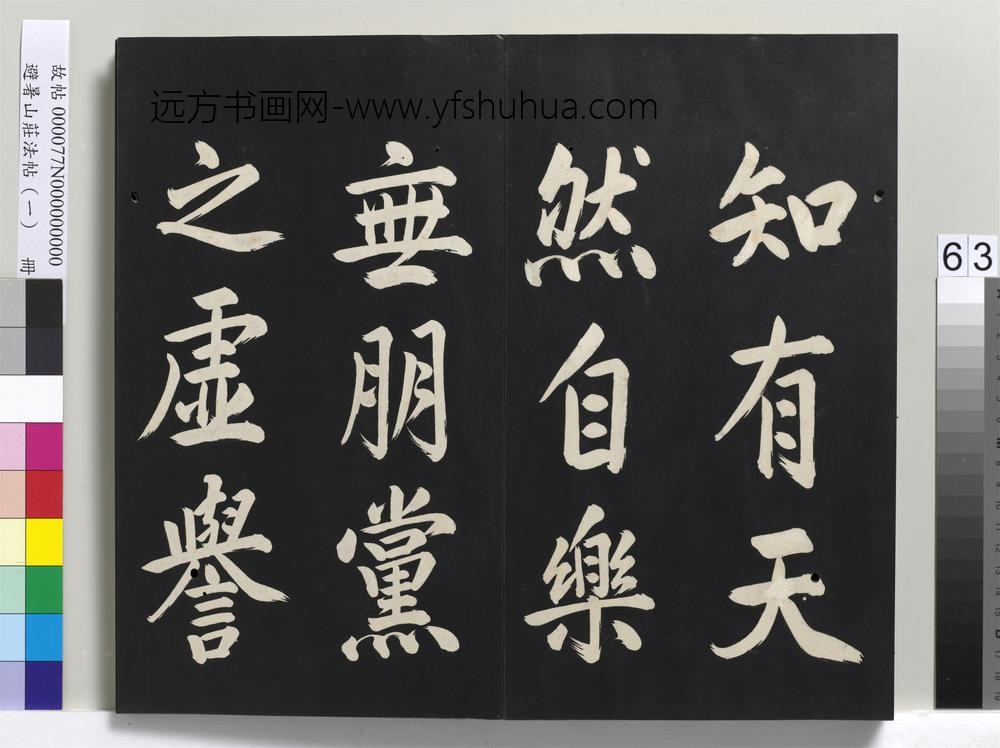 远方书画网-www.yfshuhua.com
故帖 000077N000000000
避暑山莊法帖（一） 冊
63
知有天
然自樂
無朋黨
之虛譽